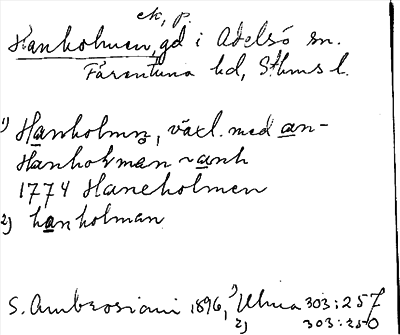 ek, p.
Hanholmen, gd i Adelsö sn.
Färentuna hd, Sthms l.
1) Hanholmꝛ, växl. med an-
Hanholman ~ anh
1774 Haneholmen
2) hanholman
S. Ambrosiani 1896, 1) Ulma 303:257
2) 303:250